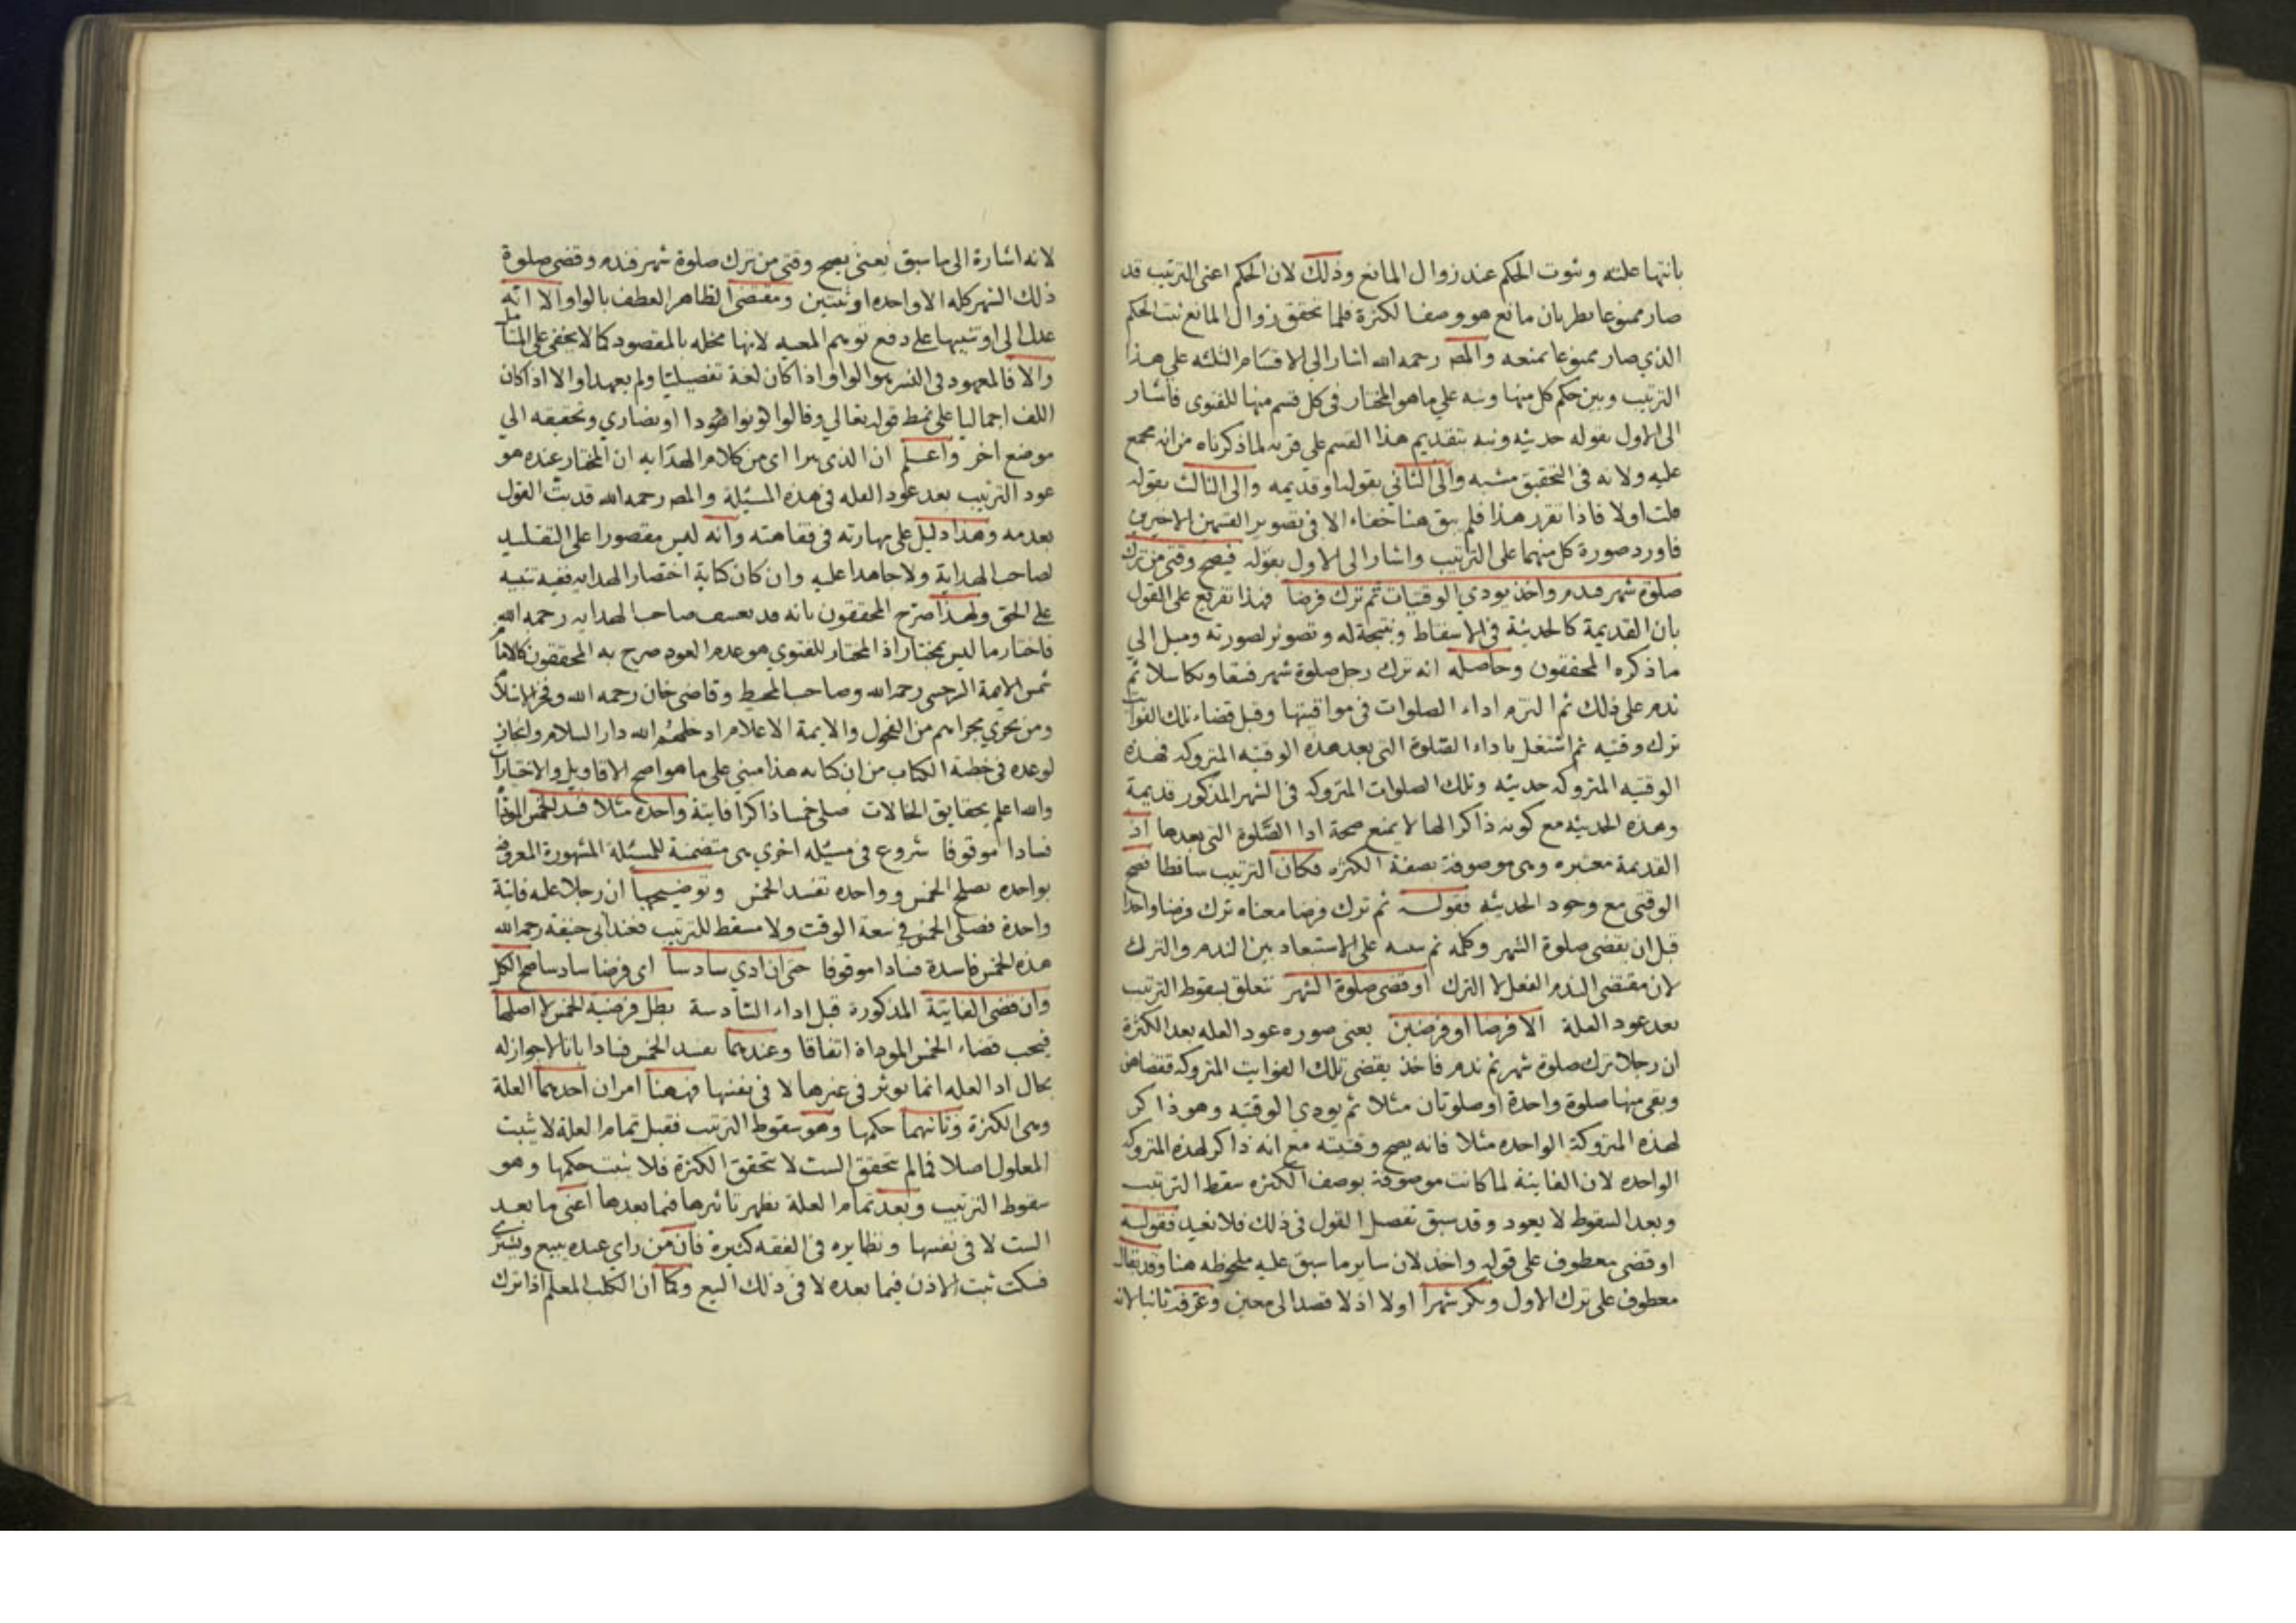 بانتهاء علته وثبوت الحكم عند زوال المانع وذلك لان الحكم اعنى الترتيب قد
صار ممنوعا بطريان مانع هو وصف الكثرة فلما تحقق زوال المانع ثبت الحكم
الذي صار ممنوعا بمنعه والمص رحمه الله اشار الى الاقسام الثلثه على هذا
الترتيب وبين حكم كل منها ونبه على ما هو المختار فى كل قسم منها للفتوى فاشار
الى الاول بقوله حديثه ونبه بتقديم هذا القسم على قربه لما ذكرناه من انه مجمع
عليه ولانه فى التحقيق مشبه به والى الثاني بقوله او قديمه والى الثالث بقوله
قلت اولا فاذا تقرر هذا فلم يبق هنا خفاء الا فى تصوير القسمين الاخيرين
فاورد صورة كل منهما على الترتيب واشار الى الاول بقوله فيصح وقتى من ترك
صلوة شهر فندم واخذ يودي الوقتيات ثم ترك فرضا فهذا تفريع على القول
بان القديمة كالحديثة فى الاسقاط ونتيجة له وتصوير لصورته وميل الي
ما ذكره المحققون وحاصله انه ترك رجل صلوة شهر فسقا وتكاسلا ثم
ندم على ذلك ثم التزم اداء الصلوات فى مواقيتها وقبل قضاء تلك الفوائت
ترك وقتيه ثم اشتغل باداء الصلوة التى بعد هذه الوقتيه المتروكه فهذه
الوقتيه المتروكه حديثه وتلك الصلوات المتروكه فى الشهر المذكور قديمة
وهذه الحديثه مع كونه ذاكرا لها لا يمنع صحة ادا الصلوة التى بعدها اذ
القديمة معتبره وهى موصوفة بصفة الكثره فكان الترتيب ساقطا فصح
الوقتى مع وجود الحديثه فقوله ثم ترك فرضا معناه ترك فرضا واحدا
قبل ان يقضى صلوة الشهر وكلمه ثم على الاستبعاد بين الندم والترك
لان مقتضى الندم الفعل لا الترك او قضى صلوة الشهر تتعلق بسقوط الترتيب
بعد عود العلة الا فرضا او فرضين يعنى صوره عود العله بعد الكثرة
ان رجلا ترك صلوة شهر ثم ندم فاخذ يقضى تلك الفوايت المتروكه فقضاهن
وبقى منها صلوة واحدة او صلوتان مثلا ثم يودى الوقتيه وهو ذاكر
لهذه المتروكة الواحده مثلا فانه يصح وقتيته مع انه ذاكر لهذه المتروكه
الواحده لان الفايتة لما كانت موصوفة بوصف الكثره سقط الترتيب
وبعد السقوط لا يعود وقد سبق تفصيل القول فى ذلك فلا نعيد فقوله
او قضى معطوف على قوله واخذ لان ساير ما سبق عليه ملحوظه هنا وقد يقال
معطوف على ترك الاول ونكر شهرا اولا اذ لا قصد الى معين وعرفه ثانيا لانه
لانه اشارة الى ما سبق يعنى يصح وقتى من ترك صلوة شهر فندم وقضى صلوة
ذلك الشهر كله الا واحده او ثنتين ومقتضى الظاهر العطف بالواو الا انه
عدل الى او تنبيها على دفع توهم المعيه لانها مخله بالمقصود كما لا يخفى على المتامل
والا فالمعهود فى النشر هو الواو اذا كان لغة تفصيليا ولم يعهد او الا اذا كان
اللف اجماليا على نمط قوله تعالي وقالوا كونوا هودا او نصاري وتحقيقه الي
موضع اخر واعلم ان الذى يترا اى من كلام الهدايه ان المختار عنده هو
عود الترتيب بعد عود العله فى هذه المسئلة والمص رحمه الله قد بت القول
بعدمه وهذا دليل على مهارته فى فقاهته وانه ليس مقصورا على التقليد
لصاحب الهداية ولا جامدا عليه وان كان كتابة اختصار الهدايه ففيه تنبيه
على الحق ولهذا صرح المحققون بانه قد تعسف صاحب الهدايه رحمه الله
فاختار ما ليس بمختار اذ المختار للفتوي هو عدم العود صرح به المحققون كالامام
شمس الايمة السرخسى رحمه الله وصاحب المحيط وقاضى خان رحمه الله وفخر الاسلام
ومن يحري مجراهم من الفحول والايمة الاعلام ادخلهم الله دار السلام وانجاز
لوعده فى خطبة الكتاب من ان كتابه هذا مبنى على ما هو اصح الاقاويل والاختيارات
والله اعلم بحقايق الحالات صلى خمسا ذاكرا فايتة واحده مثلا فسد الخمس المودا
فسادا موقوفا شروع فى مسئله اخري هى متضمنة للمسئلة المشهورة المعروفه
بواحده تصلح الخمس وواحده تفسد الخمس وتوضيحها ان رجلا عليه فايتة
واحدة فصلى الخمس فى سعة الوقت ولا مسقط للترتيب فعند ابى حنيفة رحمه الله
هذه الخمس فاسدة فسادا موقوفا حتى ان ادي سادسا اى فرضا سادسا صح الكل
وان قضى الفايتة المذكورة قبل اداء السادسة بطل فرضية الخمس لا اصلها
فيجب قضاء الخمس الموداة اتفاقا وعندهما تفسد الخمس فسادا باتا لا جواز له
بحال اذ العله انما يوثر فى غيرها لا فى نفسها فههنا امران احدهما العلة
وهى الكثرة وثانيهما حكمها وهو سقوط الترتيب فقبل تمام العلة لا يثبت
المعلول اصلا فما لم يتحقق الست لا تتحقق الكثرة فلا يثبت حكمها وهو
سقوط الترتيب وبعد تمام العلة يظهر تاثيرها فيما بعدها اعنى ما بعد
الست لا فى نفسها ونظايره فى الفقه كثيرة فان من راي عبده يبيع ويشترى
فسكت ثبت الاذن فيما بعده لا فى ذلك البيع وكما ان الكلب المعلم اذا ترك